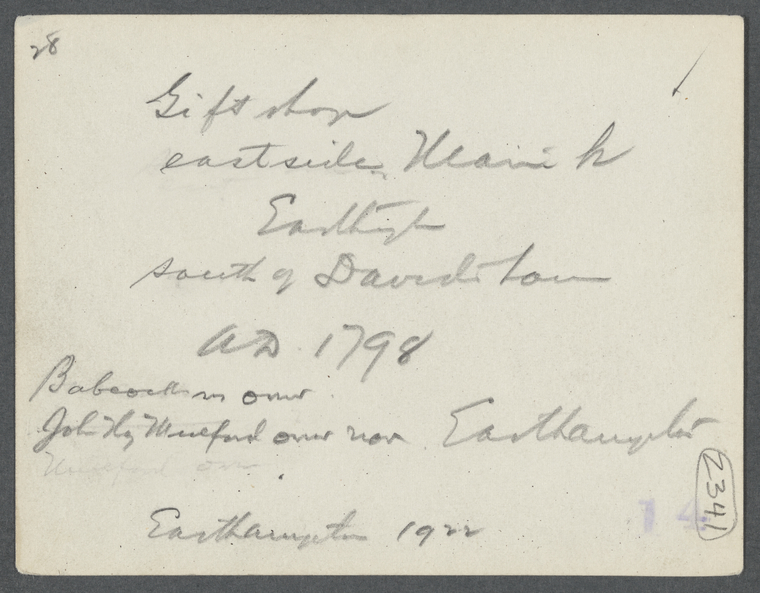 28
Gift shop
east side Main
south of Davids
AD 1798
Babcock own
John Hy Mulford own now Easthampton
Mulford own
Easthampton 1922
14
2341